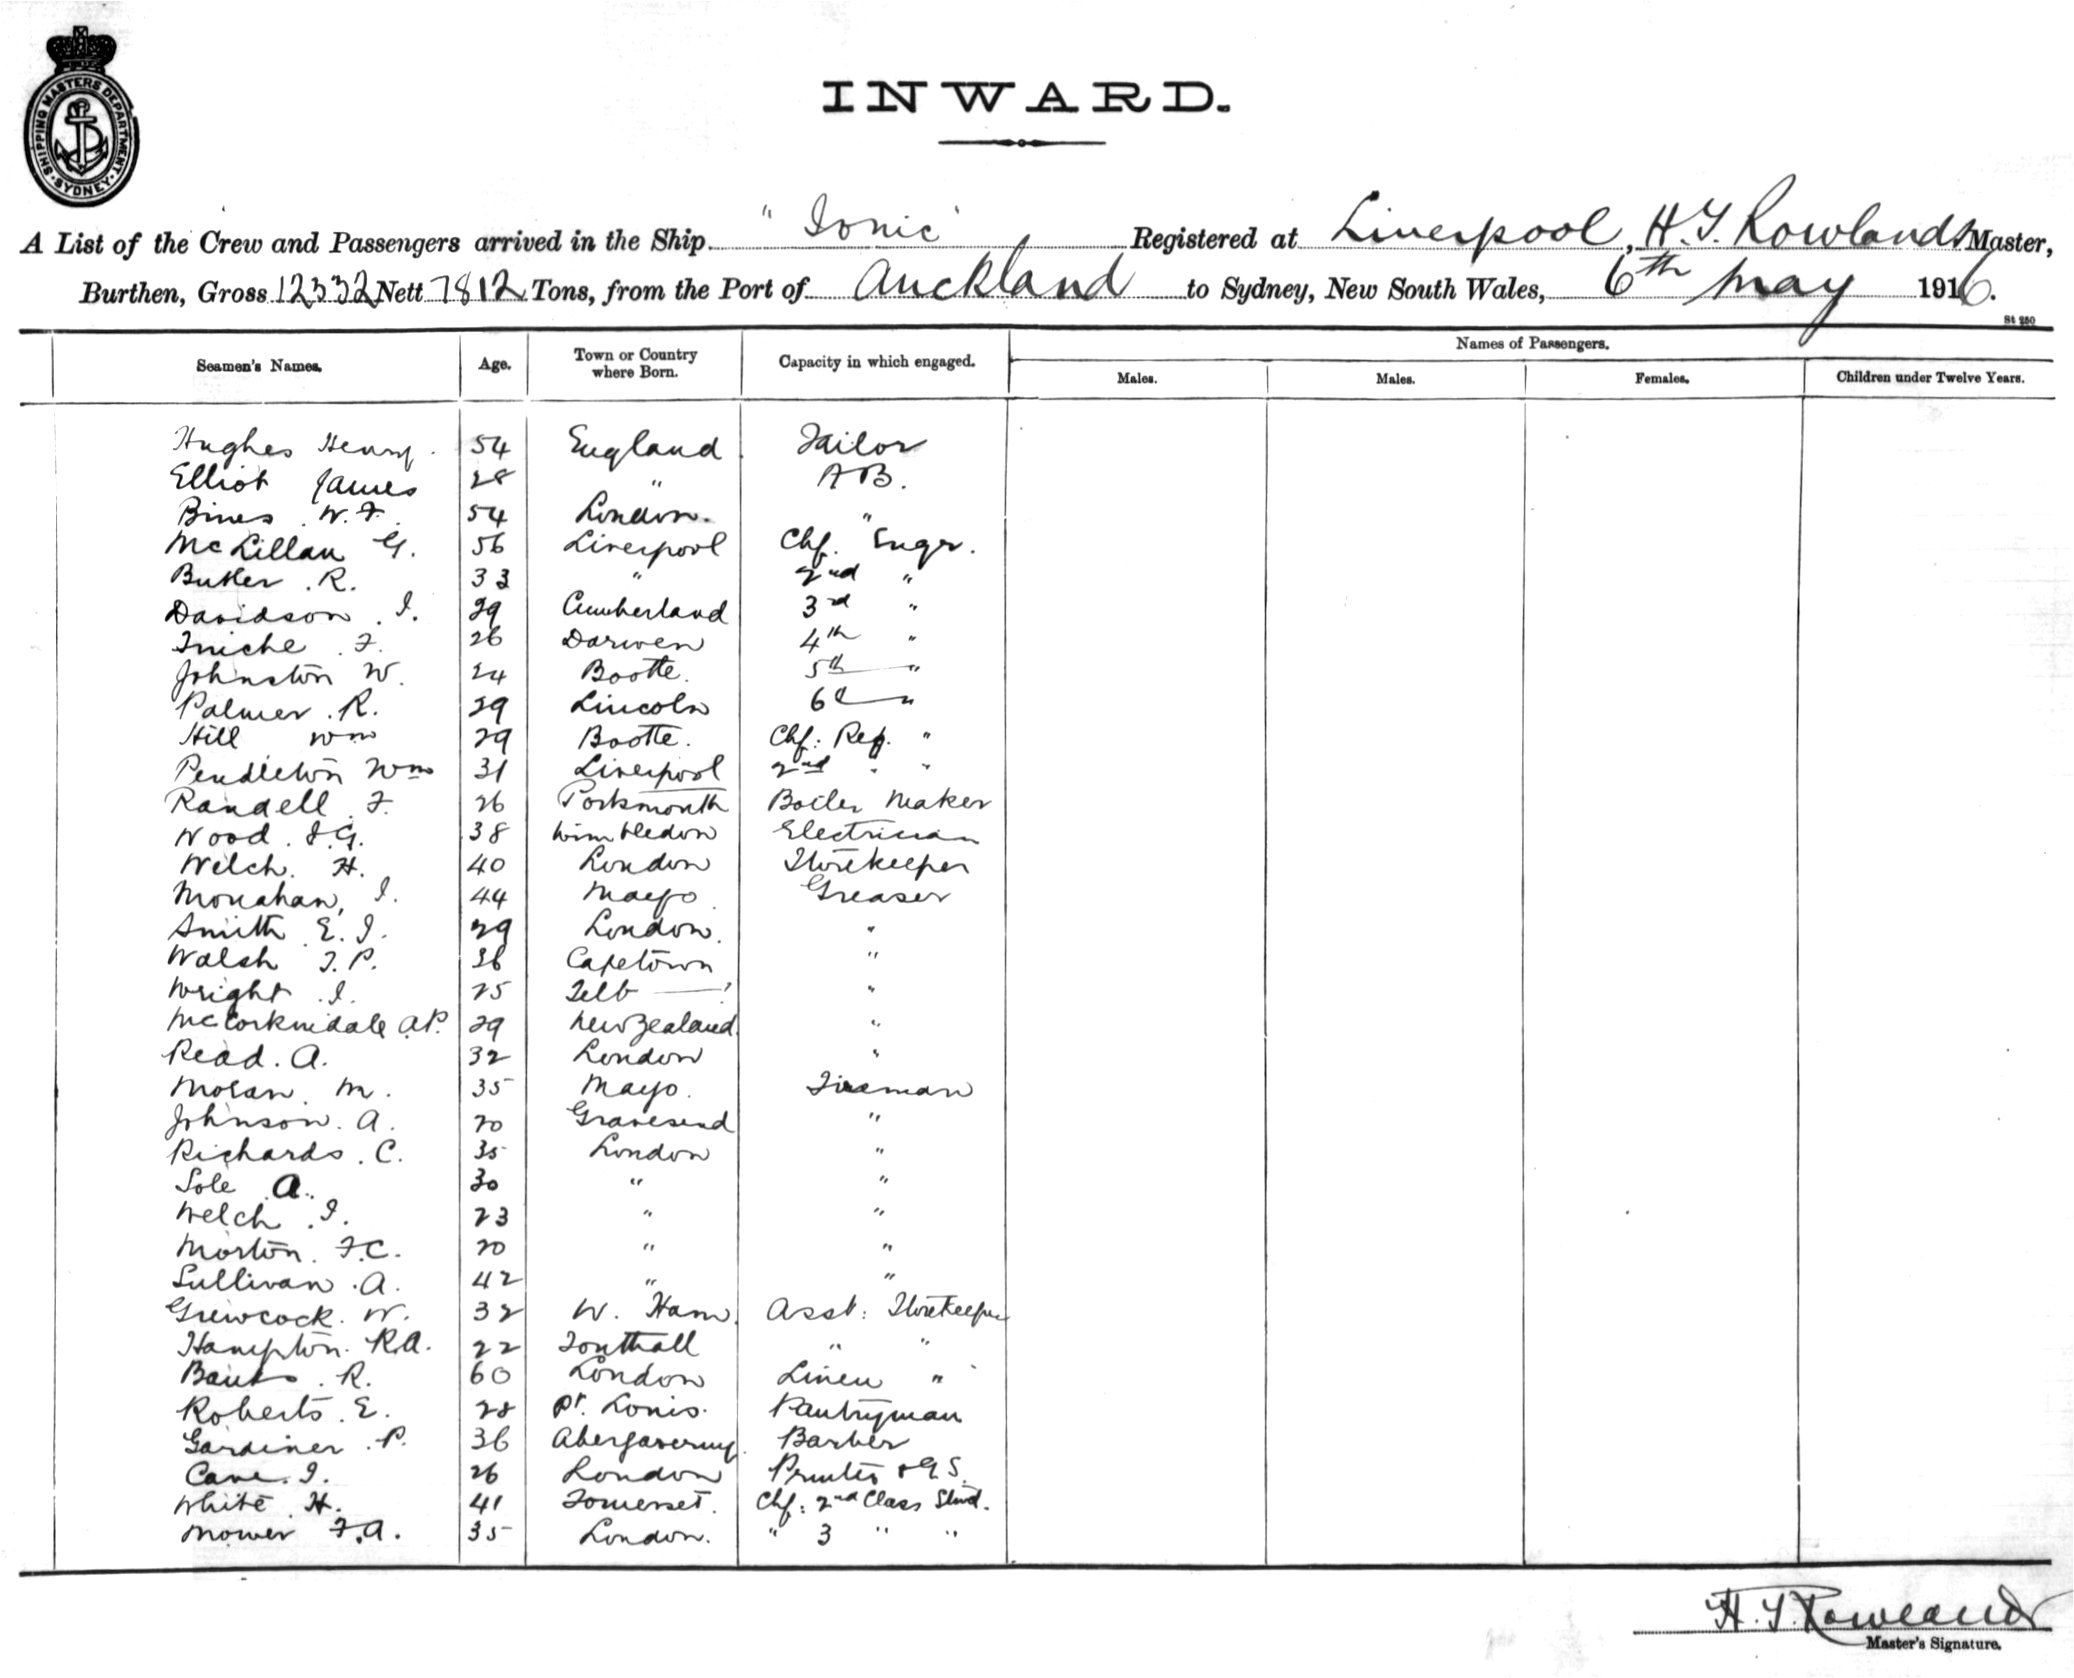 SHIPPING MASTERS DEPARTMENT · SYDNEY ·
INWARD.
A List of the Crew and Passengers arrived in the Ship "Ionic" Registered at Liverpool, H. J. Rowlands Master,
Burthen, Gross 12332 Nett 7812 Tons, from the Port of Auckland to Sydney, New South Wales, 6th May 1916.
St 250
Seamen's Names. Age. Town or Country where Born. Capacity in which engaged. Names of Passengers.
Males. Males. Females. Children under Twelve Years.
Hughes Henry. 54 England Tailor
Elliot James 28 " AB.
Bines W. F. 54 London. "
McLillan G. 56 Liverpool Chf. Engr.
Butler R. 33 " 2nd "
Davidson J. 29 Cumberland 3rd "
F. 26 Darwen 4th "
Johnston W. 24 Bootle. 5th "
Palmer R. 29 Lincoln 6th "
Hill Wm 29 Bootle. Chf. Ref. "
Pendleton Wm 31 Liverpool 2nd " "
Randell F. 26 Portsmouth Boiler Maker
Wood J.G. 38 Wimbledon Electrician
Welch. H. 40 London Storekeeper
Monahan, J. 44 Mayo. Greaser
Smith E. J. 29 London. "
Walsh J. P. 36 Capetown "
Wright J. 25 "
McCorkindale A.P. 29 New Zealand "
Read. A. 32 London "
Moran M. 35 Mayo. Fireman
Johnson. A. 20 Gravesend "
Richards. C. 35 London "
Sole A. 30 " "
Welch J. 23 " "
Morton. F.C. 20 " "
Sullivan. A. 42 " "
Grewcock. W. 32 W. Ham. Asst: Storekeeper
Hampton. R.A. 22 Southall " "
Banks. R. 60 London Linen "
Roberts. E. 28 Pt. Louis. Pantryman
Gardiner. P. 36 Abergavenny. Barber
Cave. J. 26 London Printer & G.S.
White. H. 41 Somerset. Chf: 2nd Class Stwd.
Mower F.A. 35 London. " 3 " "
H. J. Rowlands
Master's Signature.